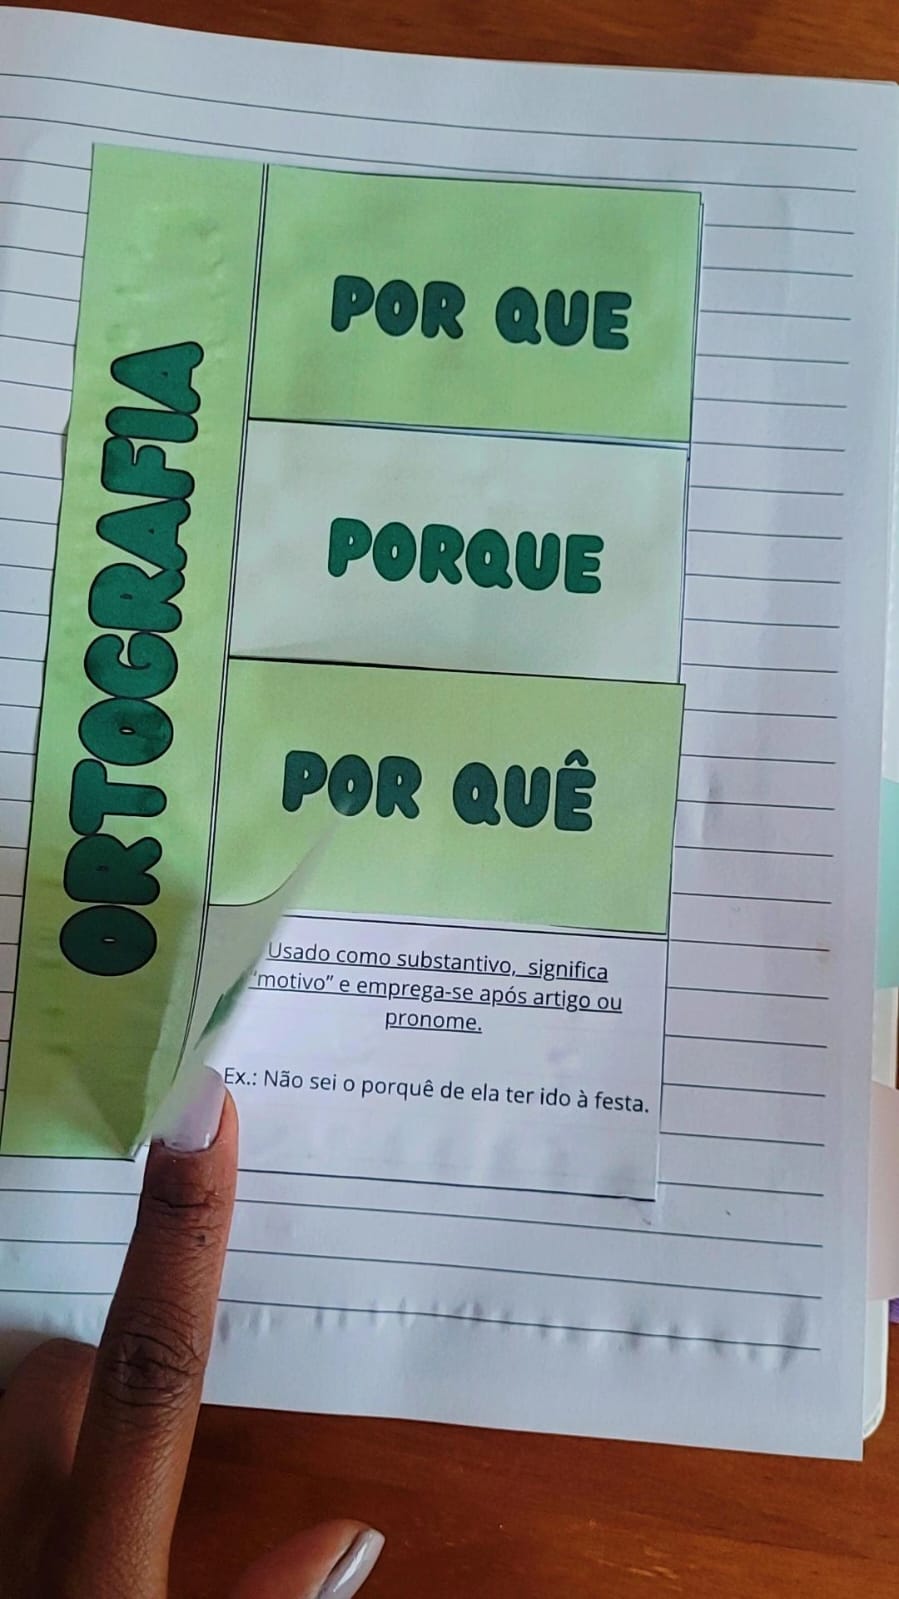 ORTOGRAFIA
POR QUE
PORQUE
POR QUÊ
Usado como substantivo, significa
"motivo" e emprega-se após artigo ou
pronome.
Ex.: Não sei o porquê de ela ter ido à festa.